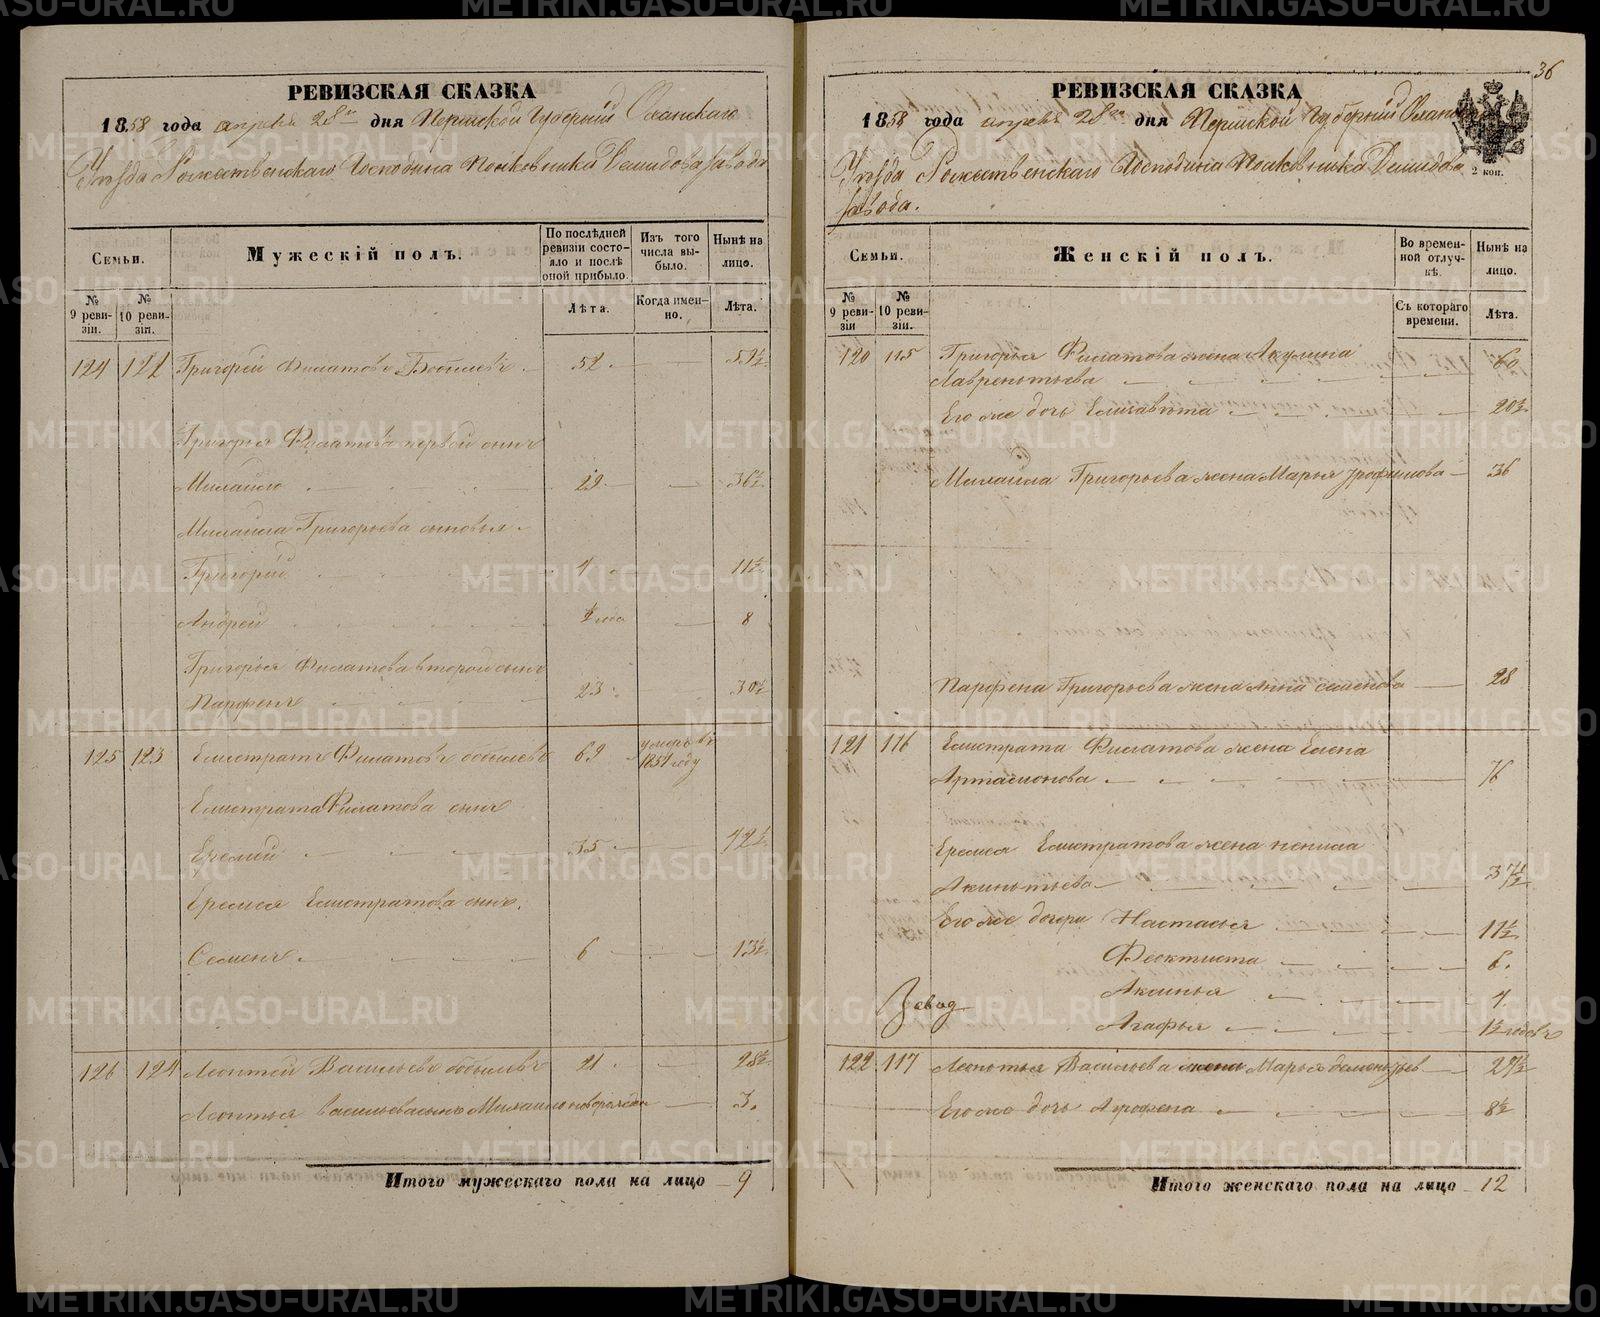 РЕВИЗСКАЯ СКАЗКА
1858 года апреля 28го дня Пермской Губернии Оханскаго
Уезда Рожественскаго Господина Полковника Демидова завода
Семьи.
Мужескiй полъ.
По послѣдней ревизiи состояло и послѣ оной прибыло.
Изъ того числа выбыло.
Нынѣ на лицо.
№ 9 ревизiи.
№ 10 ревизiи.
Лѣта.
Когда именно.
Лѣта.
124 122 Григорей Филатовъ 52 52½
Григорья Филатова первой сынъ
Михайло 29 36½
Михайла Григорьева сыновья
Григорiй 4 11½
Андрей 8
Григорья Филатова второй сынъ
Парфенъ 23 30½
125 123 Елистратъ Филатовъ 69 умеръ въ 1857 году
Елистрата Филатова сынъ
Еремей 35 42½
Еремея Елистратова сынъ
Семенъ 6 13½
126 124 Леонтей Васильевъ 21 28½
Леонтья Васильева сынъ Михайло новорожден 3.
Итого мужескаго пола на лицо 9
36
РЕВИЗСКАЯ СКАЗКА
1858 года апреля 28го дня Пермской Губернии
2 коп.
Уезда Рожественскаго Господина Полковника Демидова
завода.
Семьи.
Женскiй полъ.
Во временной отлучкѣ.
Нынѣ на лицо.
№ 9 ревизiи
№ 10 ревизiи.
Съ котораго времени.
Лѣта.
120 115 Григорья Филатова жена Акулина
Лаврентьева 60
Его же дочь Елизавета 20½
Михайла Григорьева жена Марья Трофимова 36
Парфена Григорьева жена Анна Семенова 28
121 116 Елистрата Филатова жена Елена
Артамонова 76
Еремея Елистратова жена
Акинтьева 37½
Его же дочери Настасья 11½
Феоктиста 6.
Аксинья 4
Завод
Агафья 1½ годовъ
122 117 Леонтья Васильева жена Марья 27½
Его же дочь Аграфена 8½
Итого женскаго пола на лицо 12
METRIKI.GASO-URAL.RU